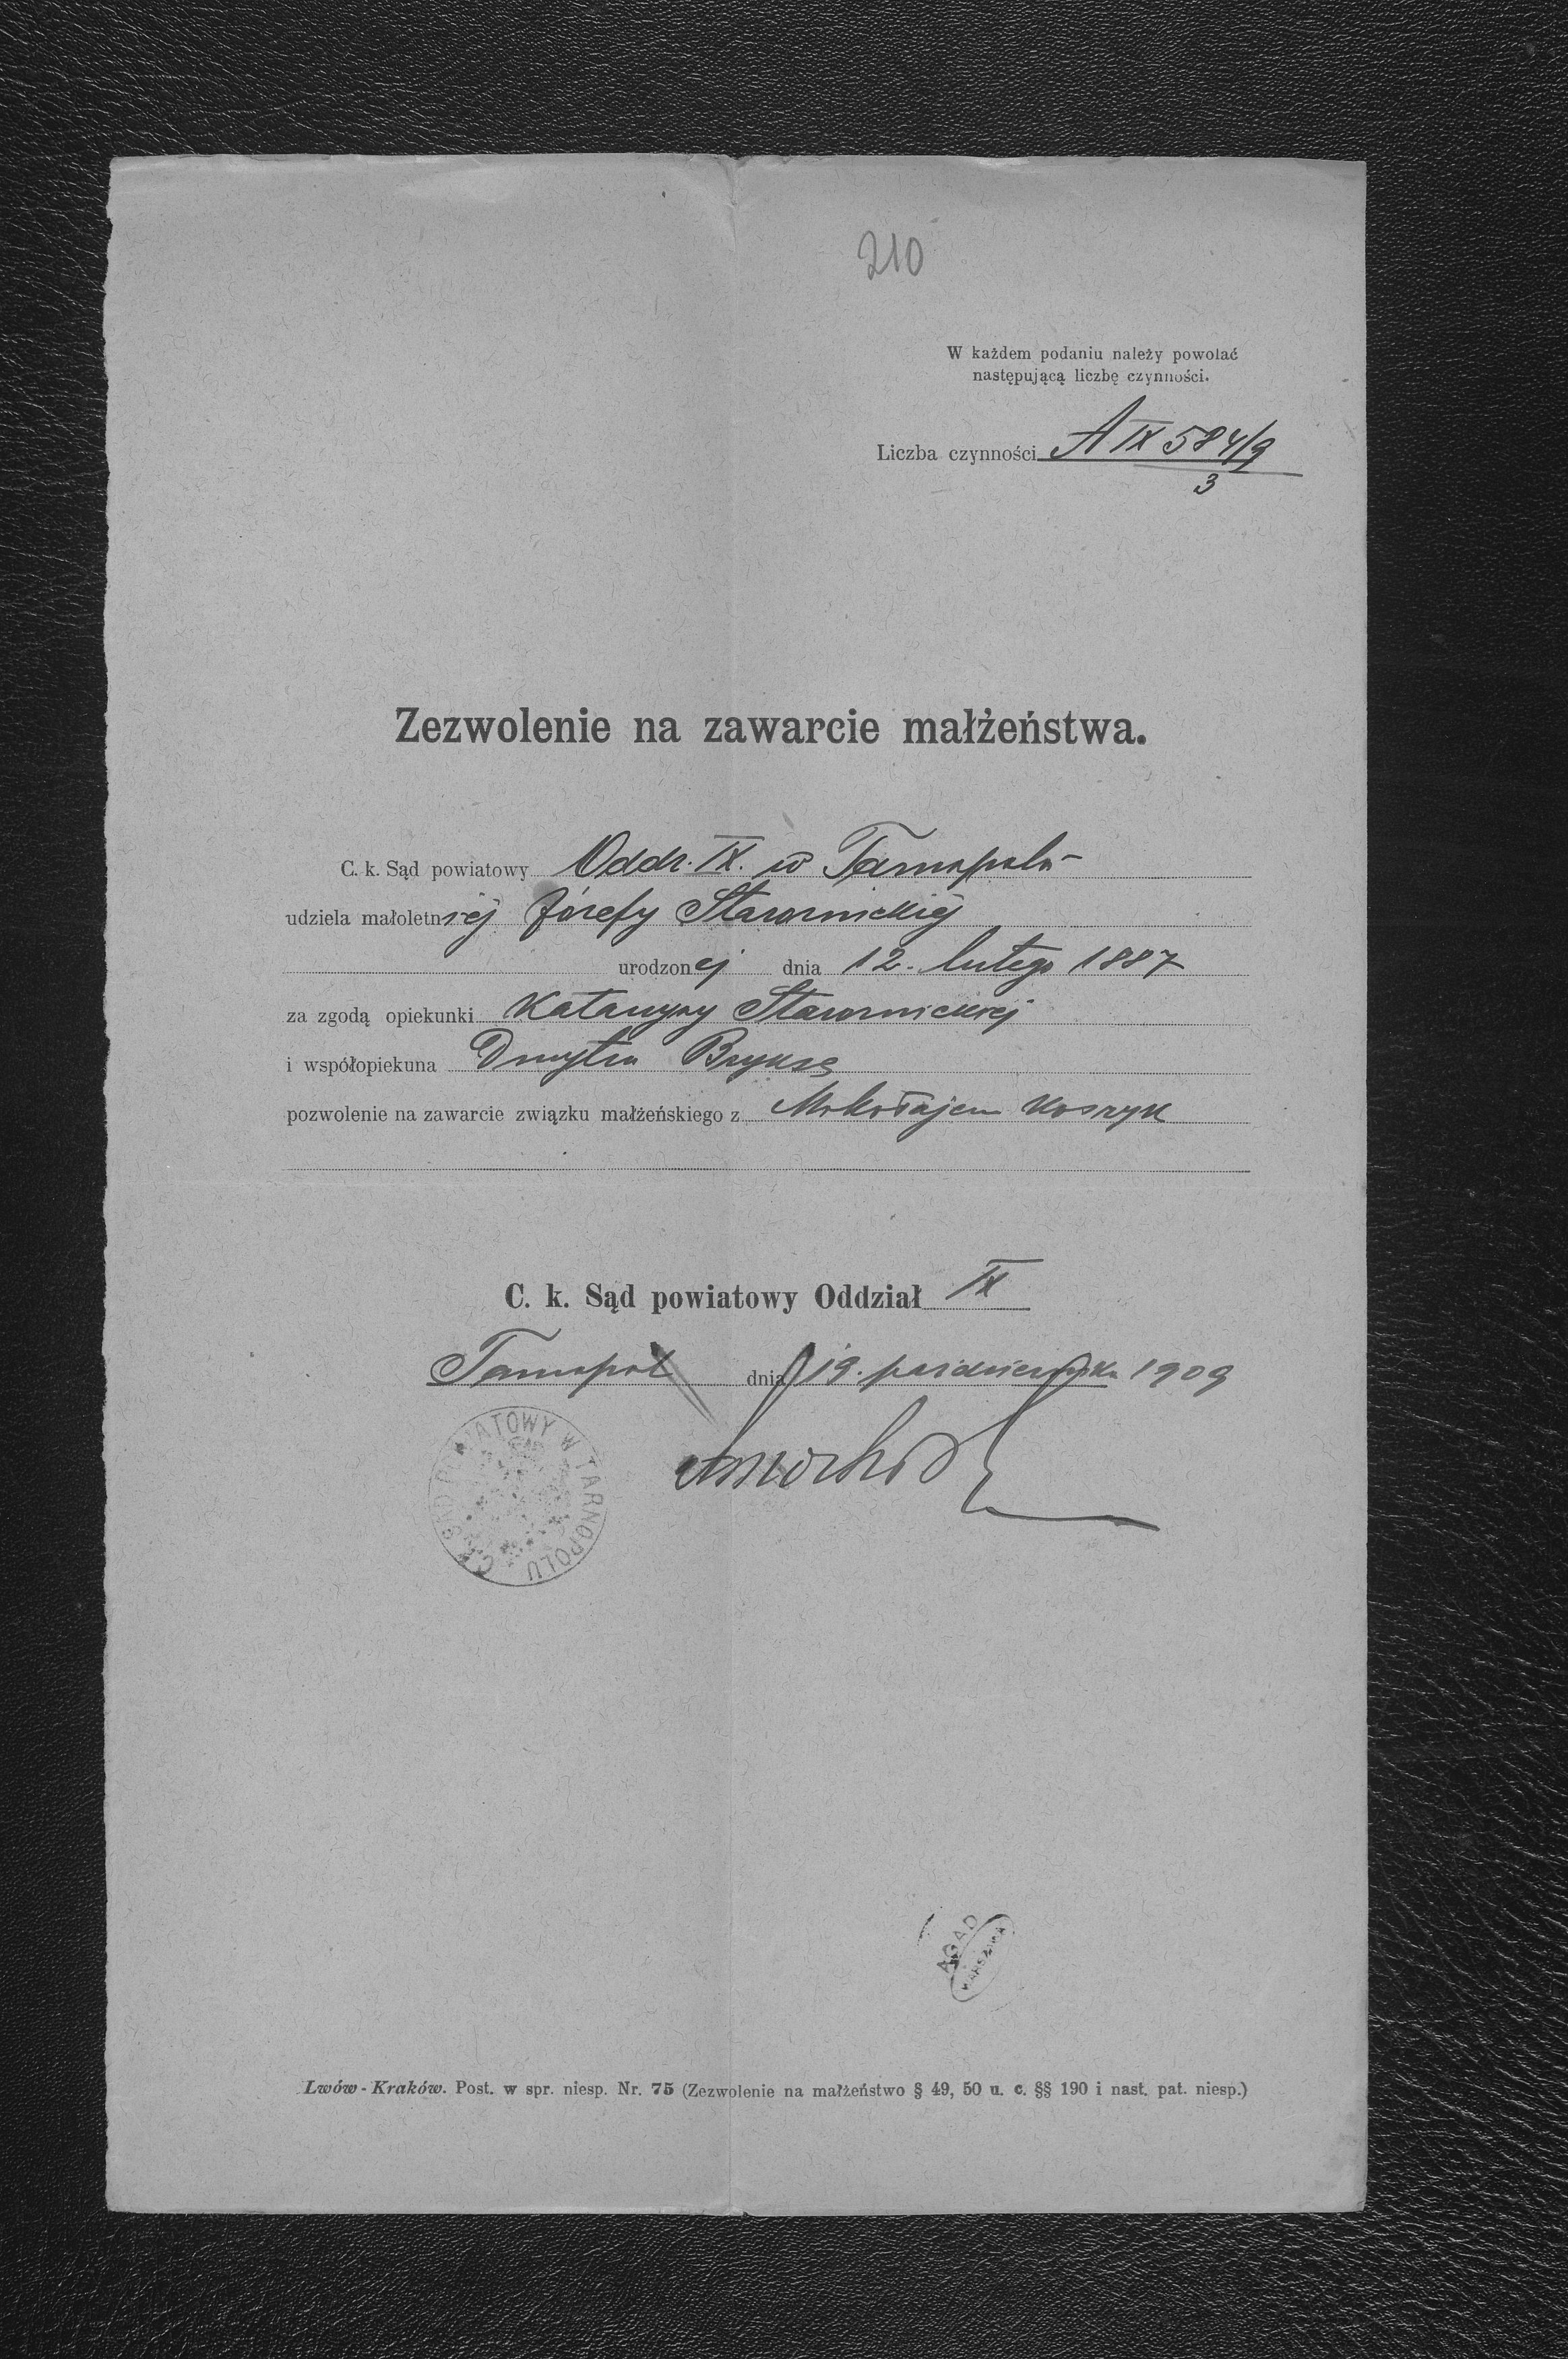 210
W każdem podaniu należy powołać
następującą liczbę czynności.
Liczba czynności A IX 584/9
3
Zezwolenie na zawarcie małżeństwa.
C. k. Sąd powiatowy Oddz. IX. w Tarnopolu
udziela małoletniej Józefy Starornickiej
urodzonej dnia 12. lutego 1887
za zgodą opiekunki Katarzyny Starornickiej
i współopiekuna Dmytra
pozwolenie na zawarcie związku małżeńskiego z Mikołajem Koszyk
C. k. Sąd powiatowy Oddział IX
Tarnopol dnia 19. października 1909
C. K. SĄD POWIATOWY W TARNOPOLU
AGAD
WARSZAWA
Lwów-Kraków. Post. w spr. niesp. Nr. 75 (Zezwolenie na małżeństwo § 49, 50 u. c. §§ 190 i nast. pat. niesp.)